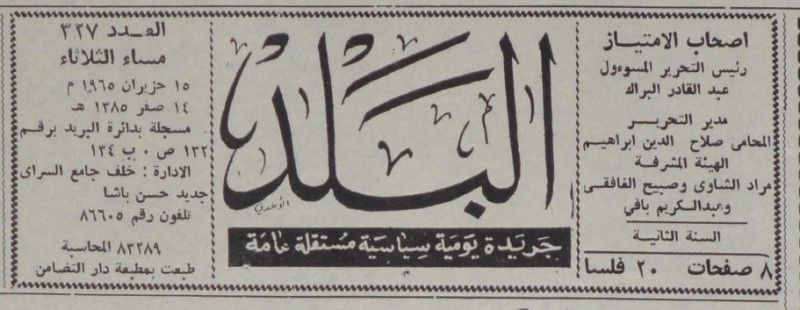 اصحاب الامتياز
رئيس التحرير المسوءول
عبد القادر البراك
مدير التحرير
المحامى صلاح الدين ابراهيم
الهيئة المشرفة
مراد الشاوى وصبيح الغافقى
وعبدالكريم بافي
السنة الثانية
٨ صفحات ٢٠ فلسا
البلد
جريدة يومية سياسية مستقلة عامة
العدد ٣٢٧
مساء الثلاثاء
١٥ حزيران ١٩٦٥ م
١٤ صفر ١٣٨٥ هـ
مسجلة بدائرة البريد برقم
١٣٢ ص ٠ ب ١٣٤
الادارة : خلف جامع السراى
جديد حسن باشا
تلفون رقم ٨٦٦٠٥
٨٣٢٨٩ المحاسبة
طبعت بمطبعة دار التضامن